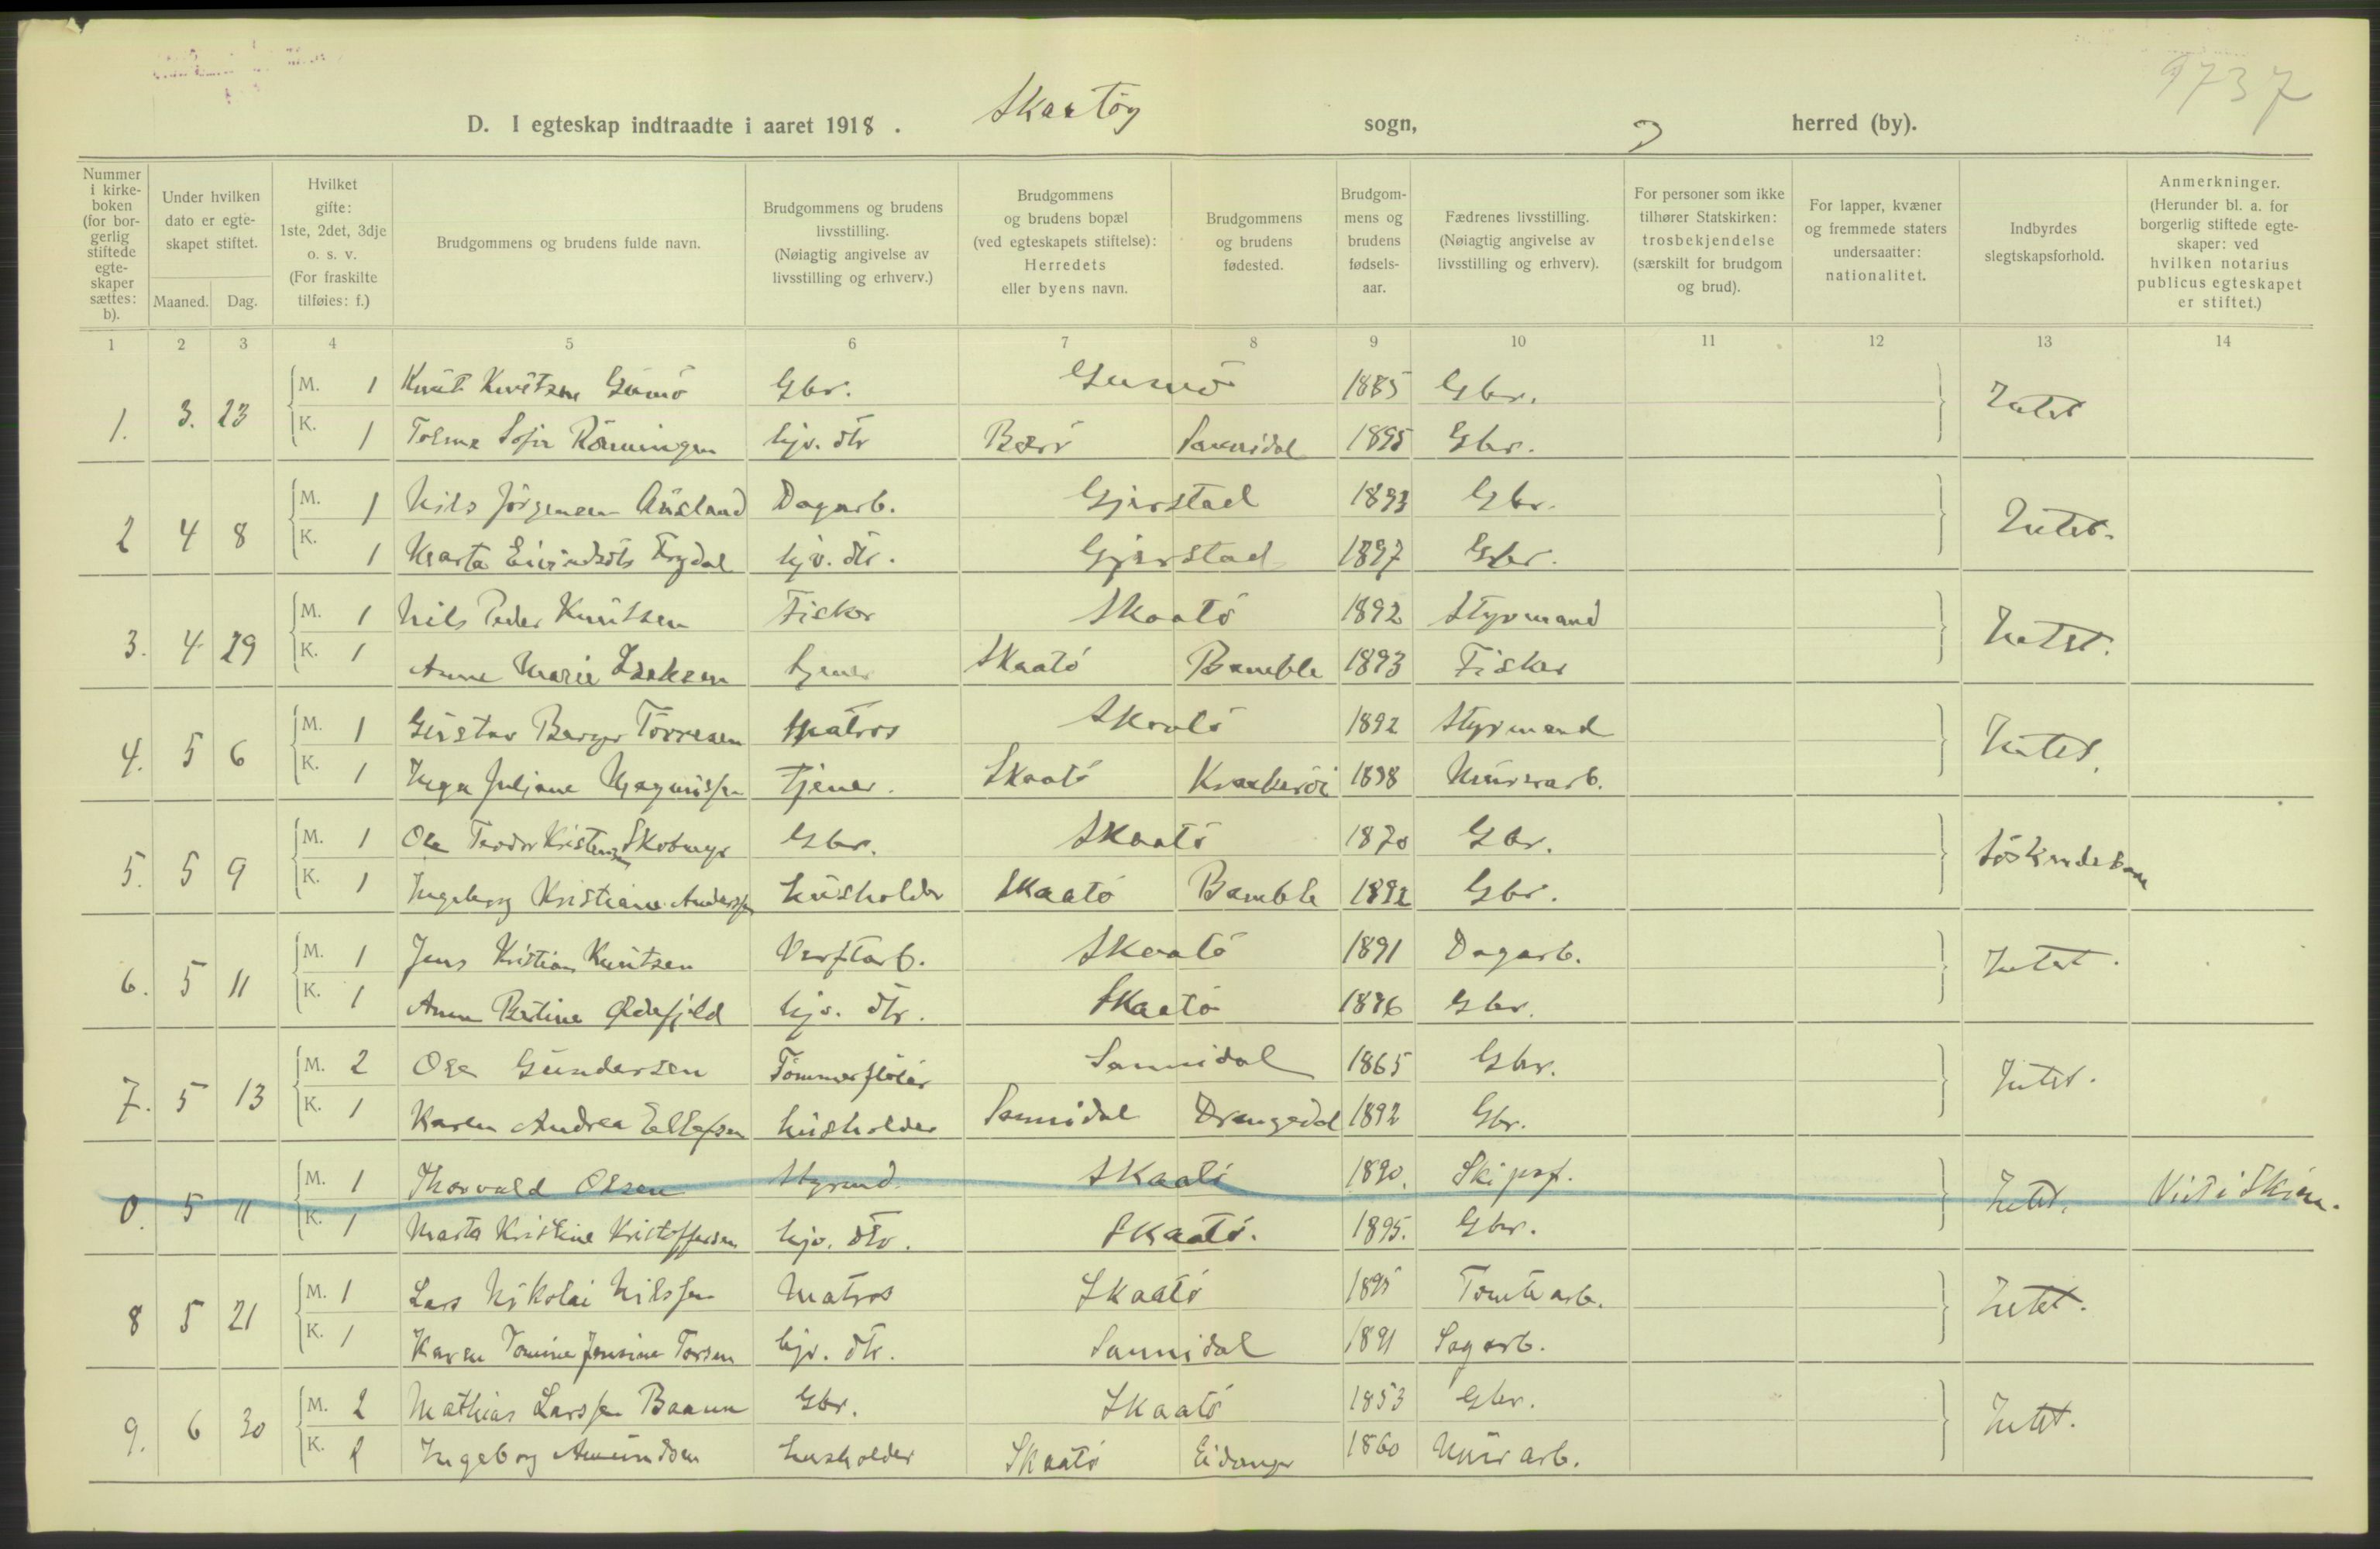 9737
D. I egteskap indtraadte i aaret 1918. Skaatöy sogn, herred (by).
Nummer i kirkeboken (for borgerlig stiftede egteskaper sættes: b).
Under hvilken dato er egteskapet stiftet.
Maaned. Dag.
Hvilket gifte: 1ste, 2det, 3dje o. s. v. (For fraskilte tilføies: f.)
Brudgommens og brudens fulde navn.
Brudgommens og brudens livsstilling. (Nøiagtig angivelse av livsstilling og erhverv.)
Brudgommens og brudens bopæl (ved egteskapets stiftelse): Herredets eller byens navn.
Brudgommens og brudens fødested.
Brudgommens og brudens fødselsaar.
Fædrenes livsstilling. (Nøiagtig angivelse av livsstilling og erhverv).
For personer som ikke tilhører Statskirken: trosbekjendelse (særskilt for brudgom og brud).
For lapper, kvæner og fremmede staters undersaatter: nationalitet.
Indbyrdes slegtskapsforhold.
Anmerkninger. (Herunder bl. a. for borgerlig stiftede egteskaper: ved hvilken notarius publicus egteskapet er stiftet.)
1 2 3 4 5 6 7 8 9 10 11 12 13 14
1. 3. 23 M. 1 Knut Knutsen Gumö Gbr. Gumö 1885 Gbr. Intet
K. 1 Sofie Rönningen hjv. dtr Sannidal 1895 Gbr.
2 4 8 M. 1 Nils Jörgensen Ausland Dagarb. Gjerstad 1893 Gbr. Intet.
K. 1 Marta Eivindsdtr hjv. dtr. Gjerstad 1897 Gbr.
3. 4 29 M. 1 Nils Peder Knutsen Fisker Skaatö 1892 Styrmand Intet.
K. 1 Anne Marie Isaksen tjener Skaatö Bamble 1893 Fisker
4. 5 6 M. 1 Gustav Berger Torresen Matros Skaatö 1892 Styrmand Intet.
K. 1 Inga Juliane Magnussen tjener. Skaatö 1898 Murerarb.
5. 5 9 M. 1 Ole Teodor Kristensen Gbr. Skaatö 1870 Gbr. Söskendebarn
K. 1 Ingeborg Kristiane Anderssen husholder Skaatö Bamble 1892 Gbr.
6. 5 11 M. 1 Jens Kristian Knutsen Verftarb. Skaatö 1891 Dagarb. Intet.
K. 1 Anne Bertine Ødefjeld hjv. dtr. Skaatö 1896 Gbr.
7. 5 13 M. 2 Ole Gundersen Tömmerflöter Sannidal 1865 Gbr. Intet.
K. 1 Karen Andrea Ellefsen husholder Sannidal Drangedal 1892 Gbr.
0. 5 11 M. 1 Thorvald Olsen Styrmd. Skaatö 1890. Skipsf. Intet. Viet i Skien.
K. 1 Marta Kristine Kristoffersen hjv. dtr. Skaatö. 1895. Gbr.
8 5 21 M. 1 Lars Nikolai Nilssen Matros Skaatö 1895 Tomtearb. Intet.
K. 1 Karen Tomine Jensine Torsen hjv. dtr. Sannidal 1891 Sagarb.
9. 6 30 M. 2 Mathias Larssen Baann Gbr. Skaatö 1853 Gbr. Intet.
K. 2 Ingeborg Amundsen husholder Skaatö Eidanger 1860 Murarb.